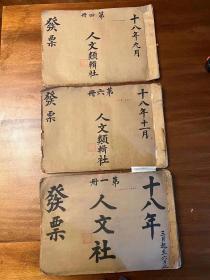 十八年九月
第四册
人文類輯社
發票
十八年十一月
第六册
人文類輯社
發票
十八年
三月起至六月止
第一册
人文社
發票